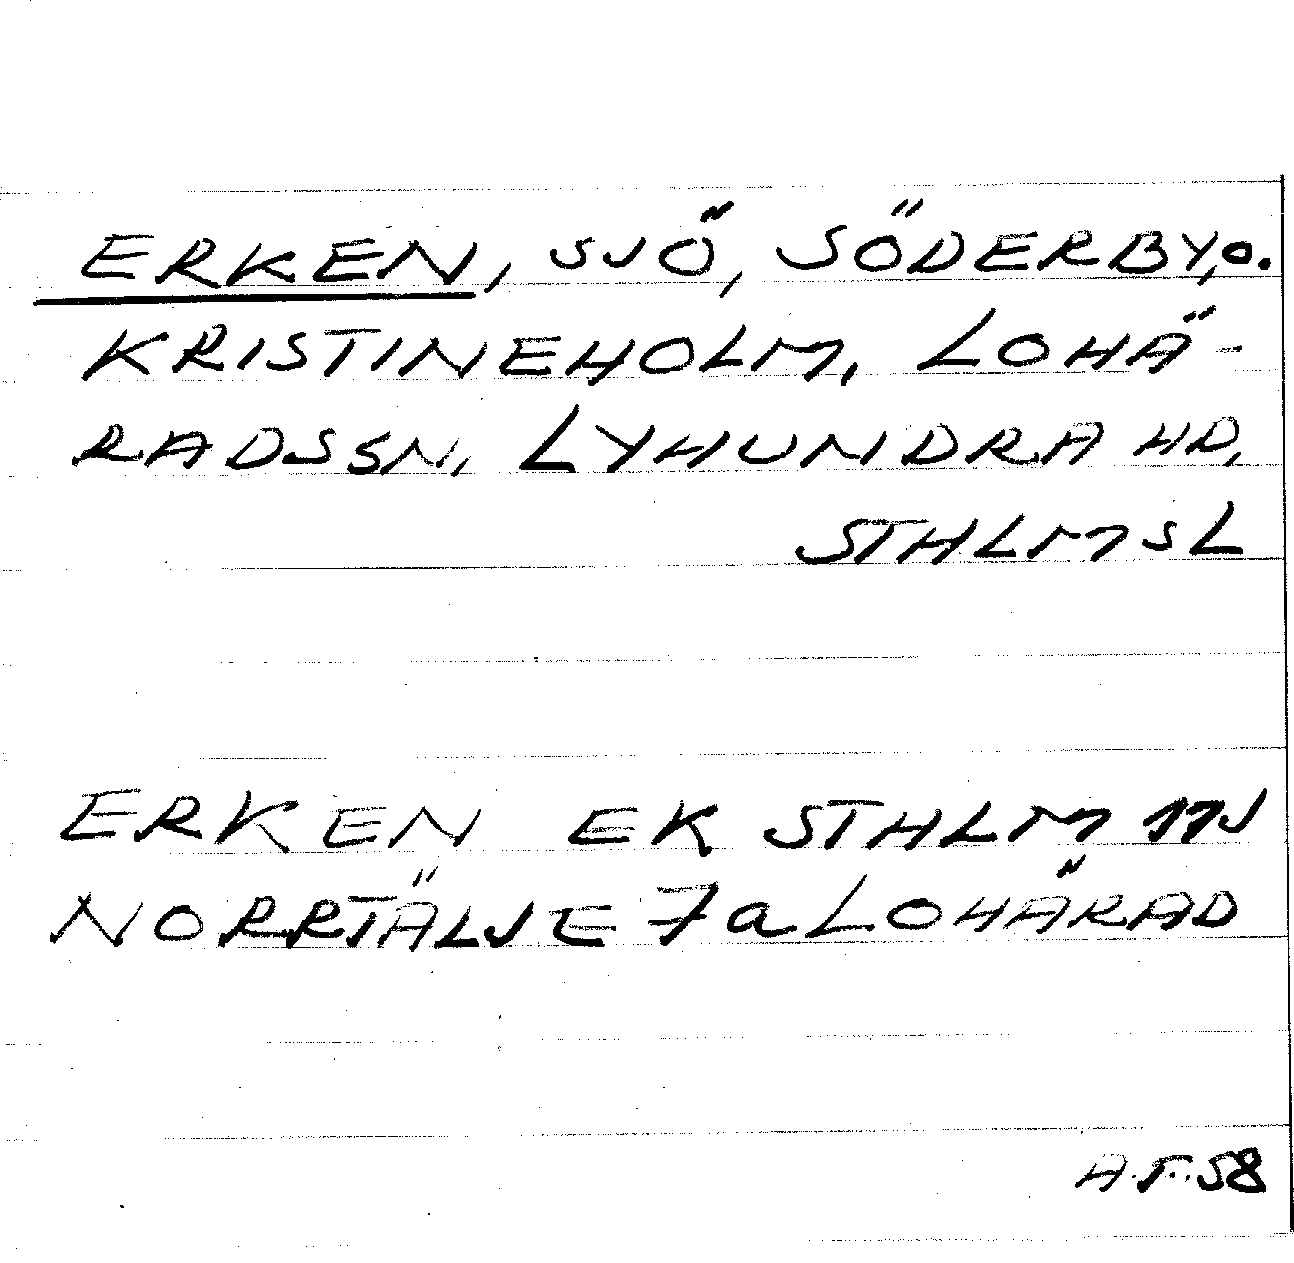 ERKEN, SJÖ, SÖDERBY, O.
KRISTINEHOLM, LOHÄ-
RADSSN, LYHUNDRA HD,
STHLMSL
ERKEN EK STHLM 11J
NORRTÄLJE 7a LOHÄRAD
A.F.58